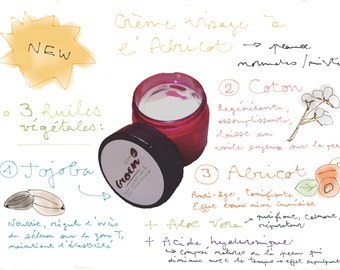 NEW
Crème visage à
l'Abricot
→ peaux
normales/mixtes
3 huiles
végétales:
① Jojoba
Nourrit, régul l'excès
de sébum sur la zone T,
maintient l'élasticité
② Coton
Régénérant,
assouplissante,
laisse un
voile soyeux sur la peau
③ Abricot
Anti-âge, tonifiante
Effet bonne mine immédiat
+ Aloe Vera → purifiant, calmant,
réparateur
+ Acide hyaluronique
↳ composé naturel de la peau qui
diminue avec le temps →